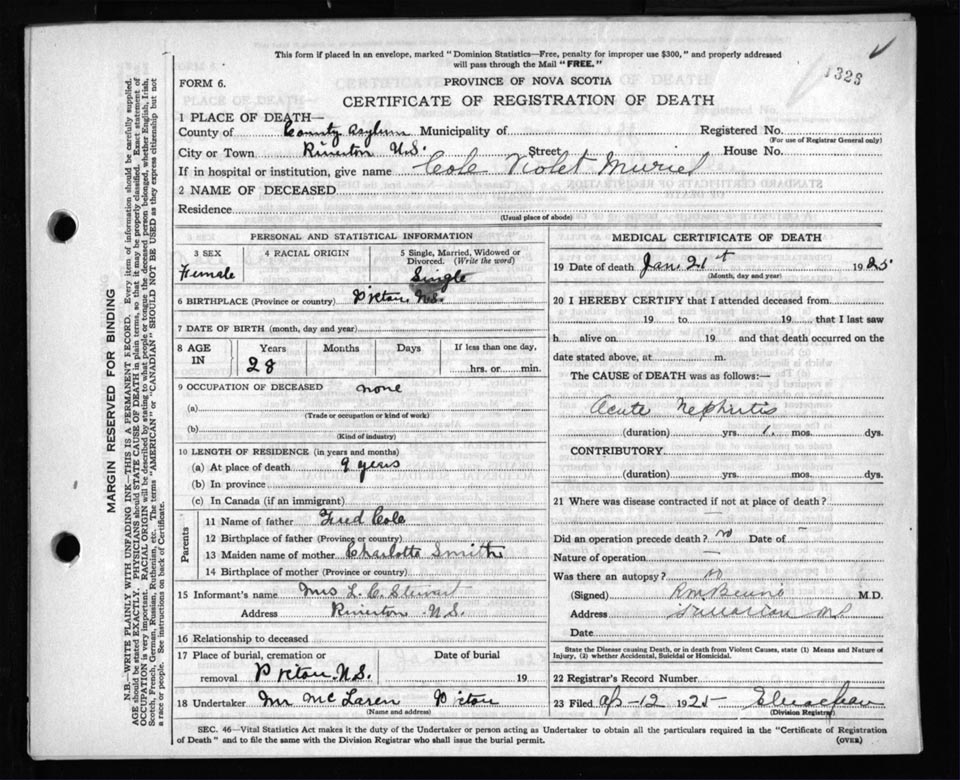 This form if placed in an envelope, marked "Dominion Statistics—Free, penalty for improper use $300," and properly addressed
will pass through the Mail "FREE."
1323
FORM 6.
PROVINCE OF NOVA SCOTIA
CERTIFICATE OF REGISTRATION OF DEATH
1 PLACE OF DEATH—
County of County Asylum Municipality of Registered No.
(For use of Registrar General only)
City or Town Riverton N.S. Street House No.
If in hospital or institution, give name Cole Violet Muriel
2 NAME OF DECEASED
Residence
(Usual place of abode)
PERSONAL AND STATISTICAL INFORMATION
3 SEX 4 RACIAL ORIGIN 5 Single, Married, Widowed or Divorced. (Write the word)
Female Single
6 BIRTHPLACE (Province or country) Pictou, N.S.
7 DATE OF BIRTH (month, day and year)
8 AGE IN Years Months Days If less than one day,
28 hrs. or min.
9 OCCUPATION OF DECEASED none
(a)
(Trade or occupation or kind of work)
(b)
(Kind of industry)
10 LENGTH OF RESIDENCE (in years and months)
(a) At place of death 9 years
(b) In province
(c) In Canada (if an immigrant)
Parents
11 Name of father Fred Cole
12 Birthplace of father (Province or country)
13 Maiden name of mother Charlotte Smith
14 Birthplace of mother (Province or country)
15 Informant's name Mrs L. C. Stewart
Address Riverton N.S.
16 Relationship to deceased
17 Place of burial, cremation or Date of burial
removal Pictou N.S. 19
18 Undertaker Mr McLaren Pictou
(Name and address)
MEDICAL CERTIFICATE OF DEATH
19 Date of death Jan. 21st 1925
(Month, day and year)
20 I HEREBY CERTIFY that I attended deceased from
19 to 19 that I last saw
h alive on 19 and that death occurred on the
date stated above, at m.
The CAUSE of DEATH was as follows:—
Acute Nephritis
(duration) yrs. 1 mos. dys.
CONTRIBUTORY
(duration) yrs. mos. dys.
21 Where was disease contracted if not at place of death?
—
Did an operation precede death? no Date of —
Nature of operation —
Was there an autopsy? no
(Signed) M.D.
Address N.S.
Date
State the Disease causing Death, or in death from Violent Causes, state (1) Means and Nature of
Injury, (2) whether Accidental, Suicidal or Homicidal.
22 Registrar's Record Number
23 Filed Ap-12 1925
(Division Registrar)
SEC. 46—Vital Statistics Act makes it the duty of the Undertaker or person acting as Undertaker to obtain all the particulars required in the "Certificate of Registration
of Death" and to file the same with the Division Registrar who shall issue the burial permit.
(OVER)
MARGIN RESERVED FOR BINDING
N.B.—WRITE PLAINLY WITH UNFADING INK—THIS IS A PERMANENT RECORD. Every item of information should be carefully supplied.
AGE should be stated EXACTLY. PHYSICIANS should STATE CAUSE OF DEATH in plain terms, so that it may be properly classified. Exact statement of
OCCUPATION is very important. RACIAL ORIGIN will be described by stating to what people or tongue the deceased person belonged, whether English, Irish,
Scotch, French, German, Russian, Ruthenian, etc. The terms "AMERICAN" or "CANADIAN" SHOULD NOT BE USED as they express citizenship but not
a race or people. See instructions on back of Certificate.